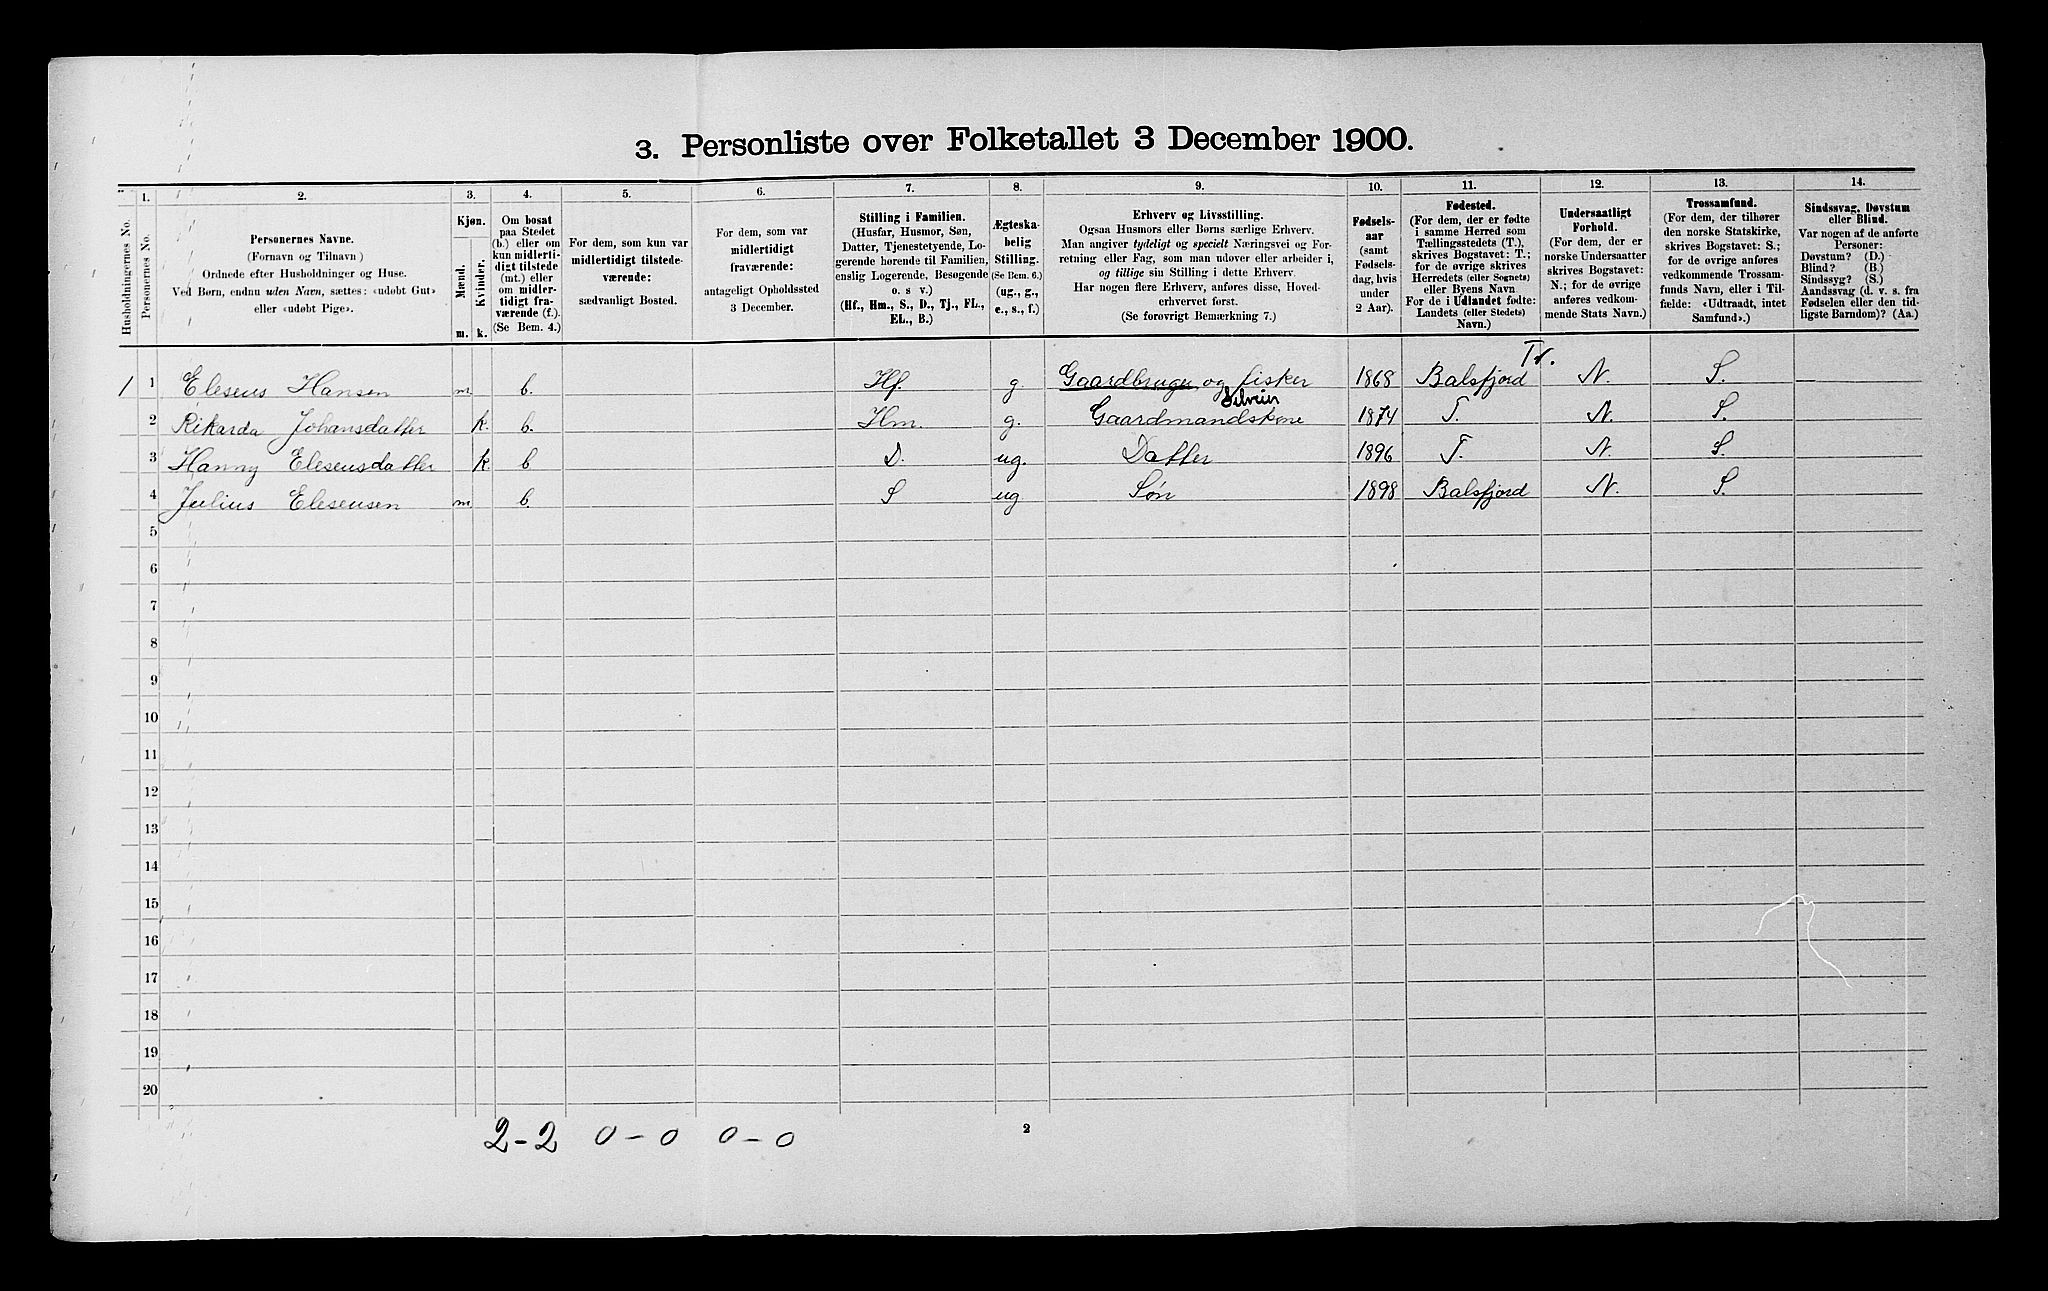 3. Personliste over Folketallet 3 December 1900.
1. 2. 3. 4. 5. 6. 7. 8. 9. 10. 11. 12. 13. 14.
Husholdningernes No.
Personernes No.
Personernes Navne.
(Fornavn og Tilnavn)
Ordnede efter Husholdninger og Huse.
Ved Børn, endnu uden Navn, sættes: «udøbt Gut»
eller «udøbt Pige».
Kjøn.
Mænd.
Kvinder.
m. k.
Om bosat
paa Stedet
(b.) eller om
kun midlerti-
digt tilstede
(mt.) eller
om midler-
tidigt fra-
værende (f.).
(Se Bem. 4.)
For dem, som kun var
midlertidigt tilstede-
værende:
sædvanligt Bosted.
For dem, som var
midlertidigt
fraværende:
antageligt Opholdssted
3 December.
Stilling i Familien.
(Husfar, Husmor, Søn,
Datter, Tjenestetyende, Lo-
gerende hørende til Familien,
enslig Logerende, Besøgende
o. s v.)
(Hf., Hm., S., D., Tj., FL.,
EL., B.)
Ægteska-
belig
Stilling.
(Se Bem. 6.)
(ug., g.,
e., s., f.)
Erhverv og Livsstilling.
Ogsaa Husmors eller Børns særlige Erhverv.
Man angiver tydeligt og specielt Næringsvei og For-
retning eller Fag, som man udøver eller arbeider i,
og tillige sin Stilling i dette Erhverv.
Har nogen flere Erhverv, anføres disse, Hoved-
erhvervet først.
(Se forøvrigt Bemærkning 7.)
Fødsels-
aar
(samt
Fødsels-
dag, hvis
under
2 Aar).
Fødested.
(For dem, der er fødte
i samme Herred som
Tællingsstedets (T.),
skrives Bogstavet: T.;
for de øvrige skrives
Herredets (eller Sognets)
eller Byens Navn
For de i Udlandet fødte:
Landets (eller Stedets)
Navn.)
Undersaatligt
Forhold.
(For dem, der er
norske Undersaatter
skrives Bogstavet:
N.; for de øvrige
anføres vedkom-
mende Stats Navn.)
Trossamfund.
(For dem, der tilhører
den norske Statskirke,
skrives Bogstavet: S.;
for de øvrige anføres
vedkommende Trossam-
funds Navn, eller i Til-
fælde: «Udtraadt, intet
Samfund».)
Sindssvag, Døvstum
eller Blind.
Var nogen af de anførte
Personer:
Døvstum? (D.)
Blind? (B.)
Sindssyg? (S.)
Aandssvag (d. v. s. fra
Fødselen eller den tid-
ligste Barndom)? (Aa.)
Tr.
1 1 Elesens Hansen m b. Hf. g. Gaardbruger og fisker 1868 Balsfjord N. S.
Selveier
2 Rikarda Johansdatter k. b. Hm. g. Gaardmandskone 1874 T. N. S.
3 Hanny Elesensdatter k. b D. ug. Datter 1896 T. N. S.
4 Julius Elesensen m b. S ug Søn 1898 Balsfjord N. S.
5
6
7
8
9
10
11
12
13
14
15
16
17
18
19
20
2-2 0-0 0-0 2